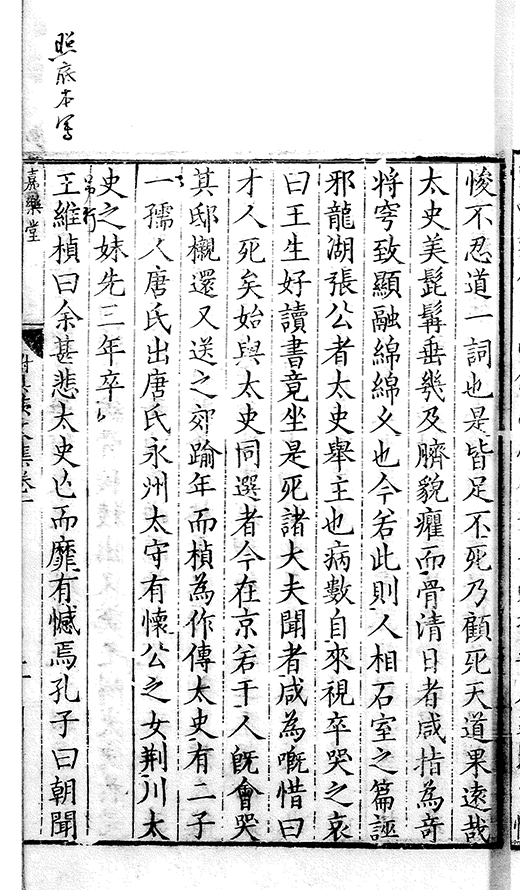 悛不忍道一詞也是皆足不死乃顧死天道果遠哉
太史美髭髯垂幾及臍貌癯而骨清日者咸指為奇
將穹致顯融綿綿久也今若此則人相石室之篇誣
邪龍湖張公者太史舉主也病數自來視卒哭之哀
曰王生好讀書竟坐是死諸大夫聞者咸為嘅惜曰
才人死矣始與太史同選者今在京若干人旣會哭
其邸櫬還又送之郊踰年而楨為作傳太史有二子
一孺人唐氏出唐氏永州太守有懷公之女荆川太
史之妹先三年卒
王維楨曰余甚悲太史亡而靡有憾焉孔子曰朝聞
嘉樂堂
照底本写
另行